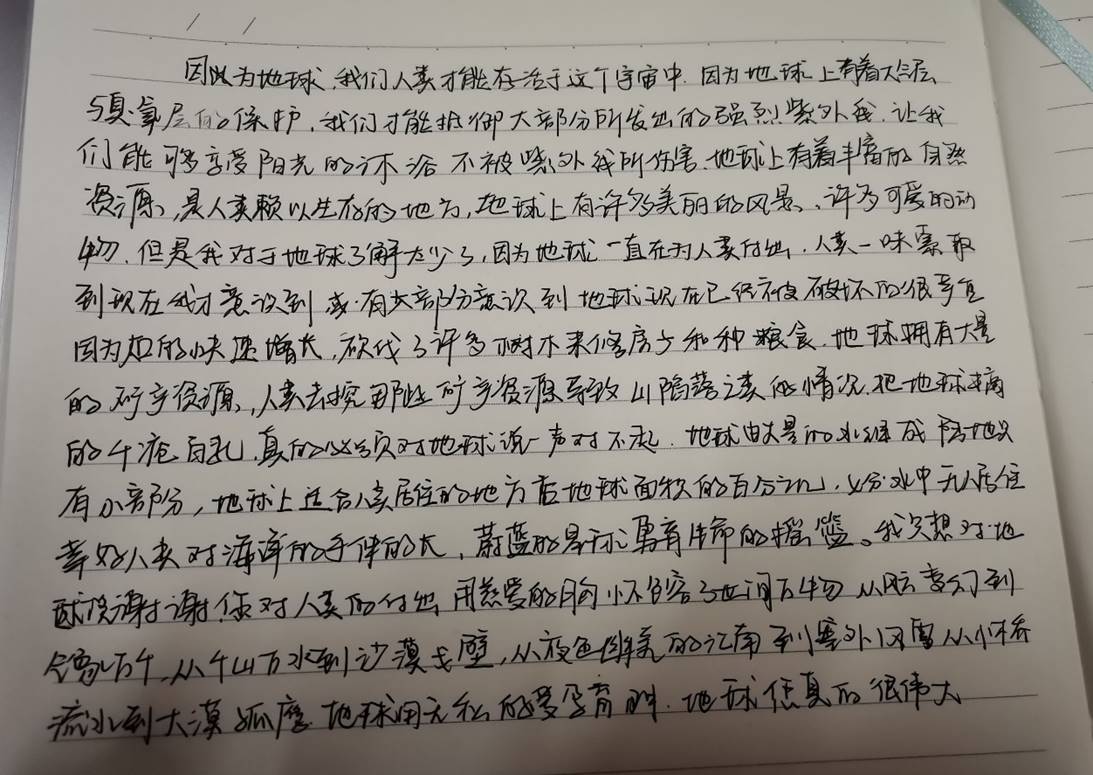 因此为地球,我们人类才能存活于这个宇宙中.因为地球上有着大气层
与臭氧层的保护,我们才能抵御大部分所发出的强烈紫外线.让我
们能够享受阳光的沐浴不被紫外线所伤害.地球上有着丰富的自然
资源,是人类赖以生存的地方,地球上有许多美丽的风景、许多可爱的动
物.但是我对于地球了解太少了,因为地球一直在为人类付出.人类一味索取
到现在我才意识到或有大部分意识到地球现在已经被破坏的很严重
因为的快速增长,砍伐了许多树木来修房子和种粮食.地球拥有大量
的矿产资源,人类去挖那些矿产资源导致山陷落之类的情况.把地球搞
的千疮百孔,真的必须对地球说一声对不起.地球由大量的水组成陆地只
有小部分,地球上适合人类居住的地方占地球面积的百分之,水中无人居住
幸好人类对海洋的手伸的长,蔚蓝的是孕育生命的摇篮。我只想对地
球说谢谢你对人类的付出用慈爱的胸怀包容了世间万物从变幻到
万千,从千山万水到沙漠戈壁,从夜色的江南到塞外风雪从小桥
流水到大漠孤鹰.地球用无私的爱孕育.地球您真的很伟大